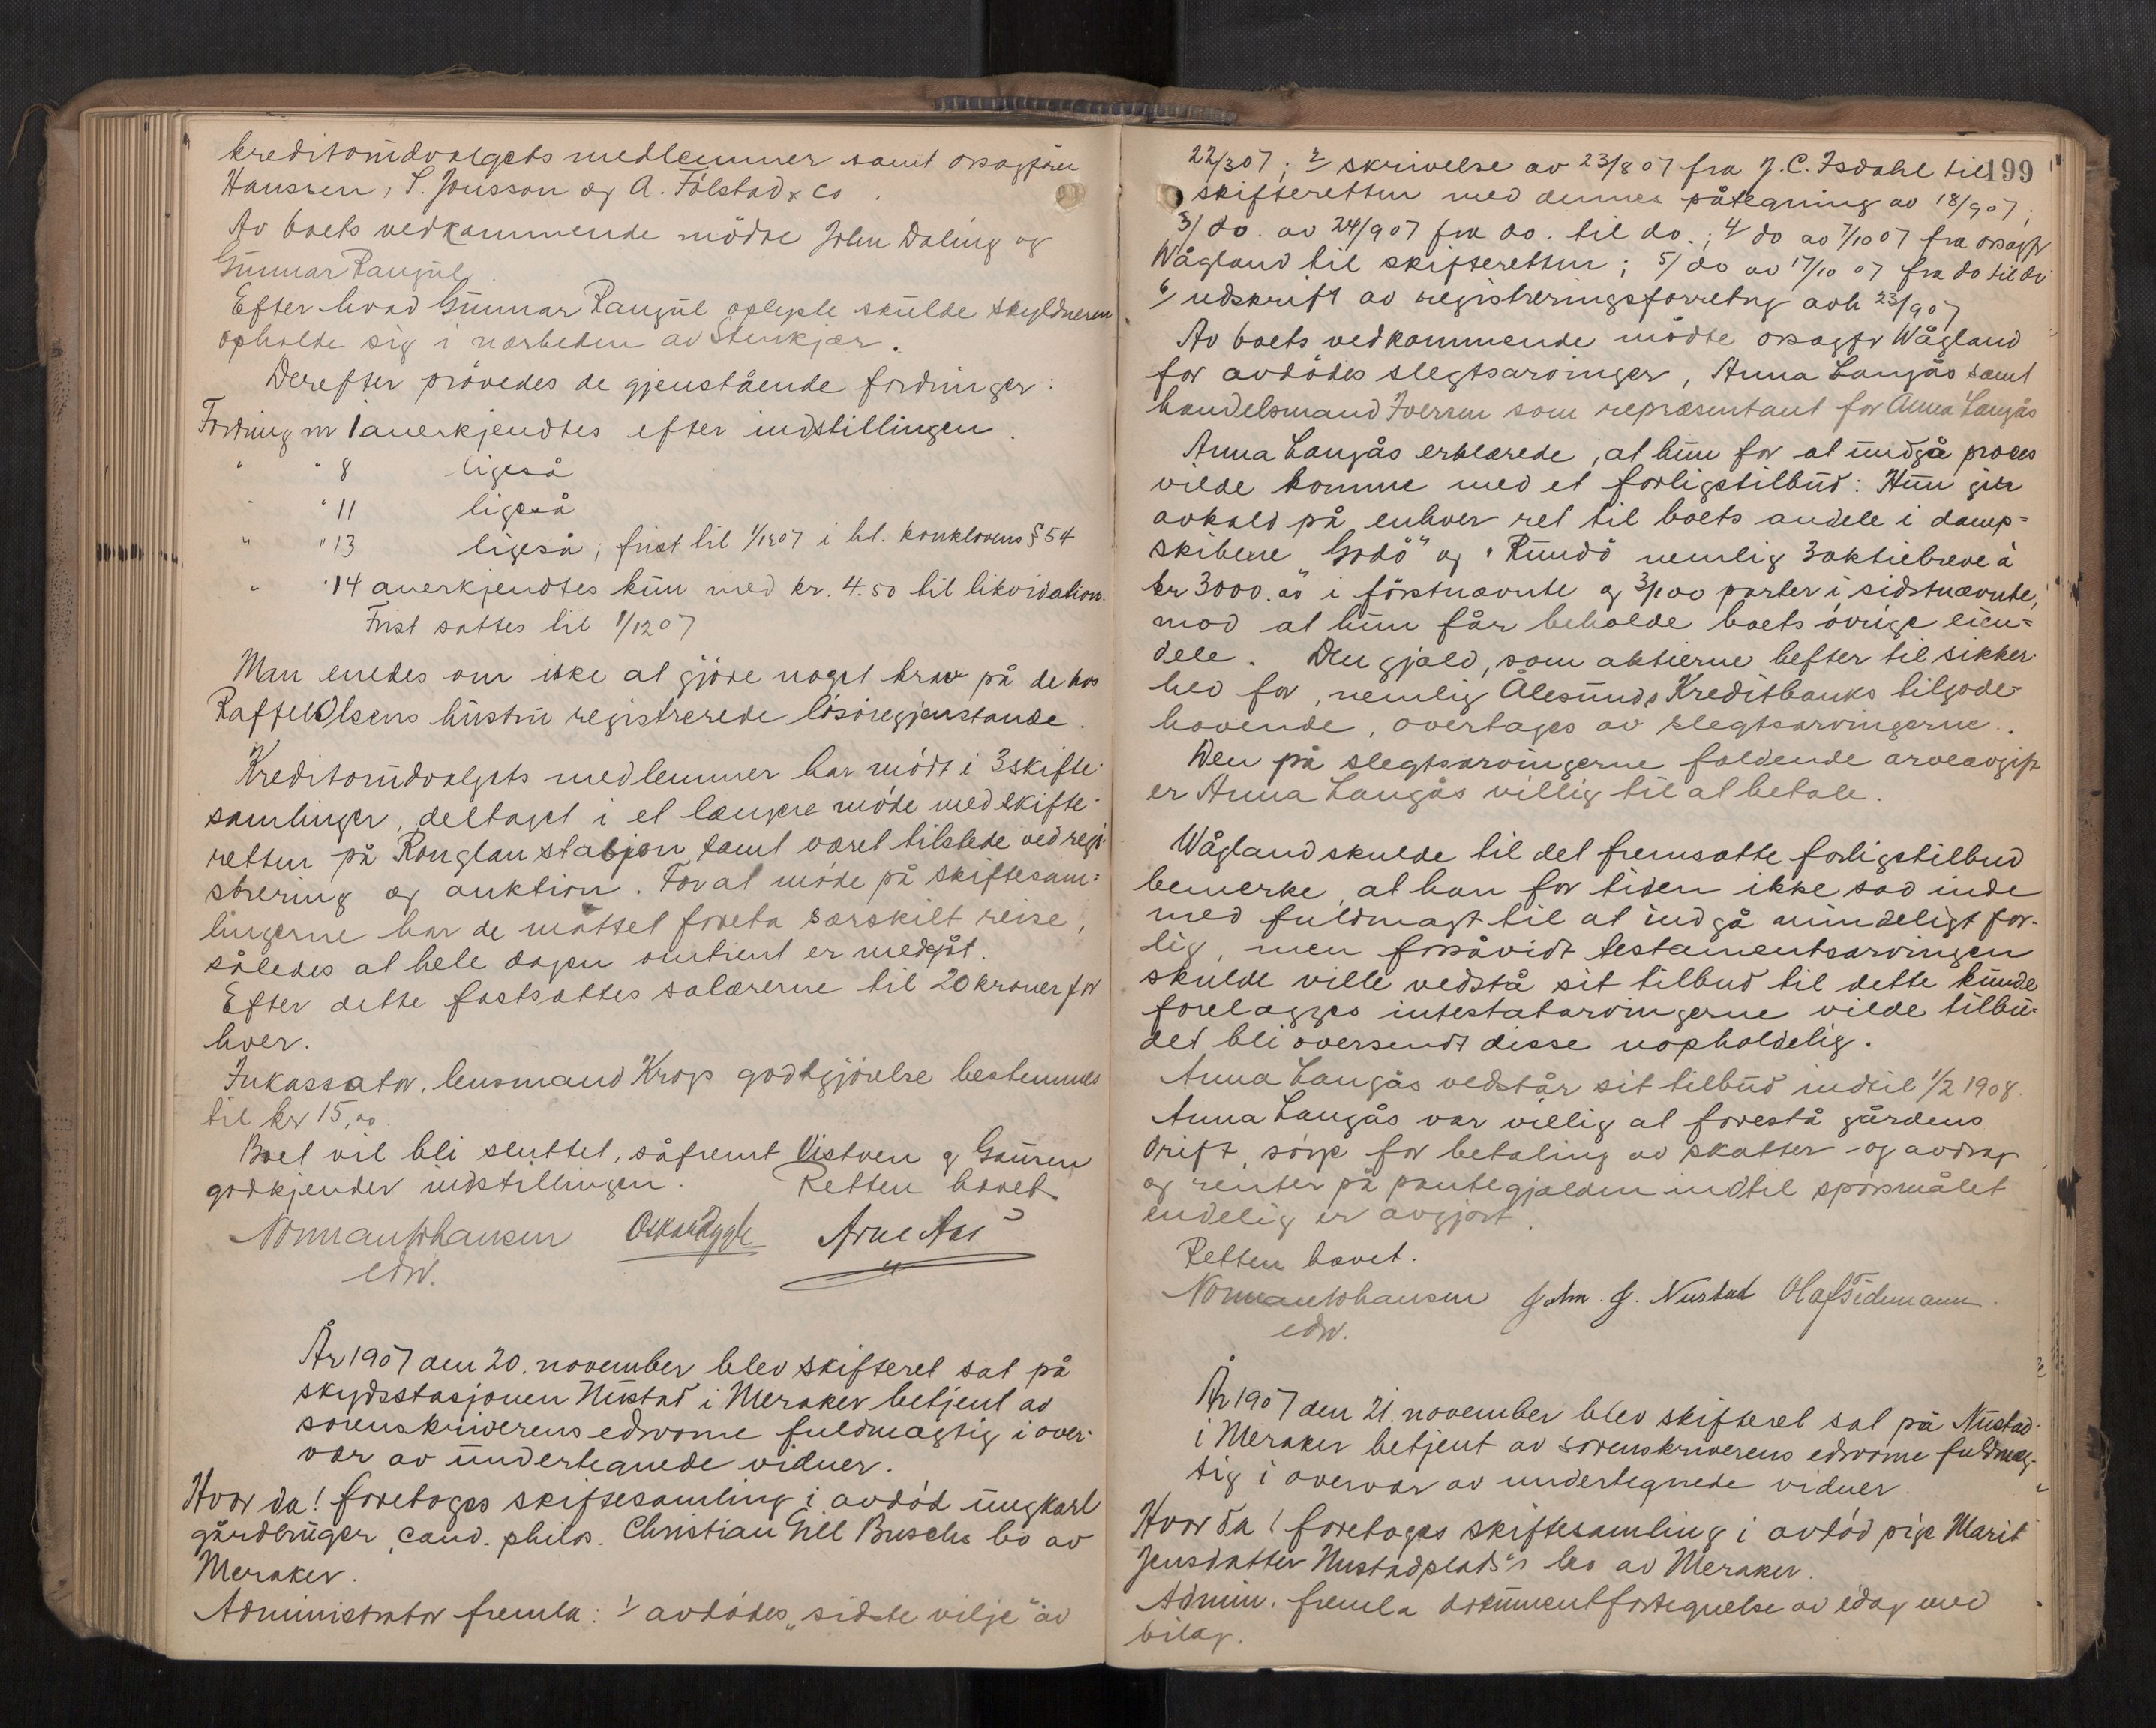 kreditorudvalgets medlemmer samt orsagfører
Hanssen, S. Jonsson og A. Følstad & co.
Av boets vedkommende mødte John Daling og
Gunnar Rangul
Efter hvad Gunnar Rangul oplyste skulde skyldneren
opholde sig i nærheden av Stenkjær.
Derefter prøvedes de gjenstående fordringer:
Fordring nr 1 anerkjendtes efter indstillingen.
" " 8 ligeså
" " 11 ligeså
" " 13 ligeså; frist til 1/1207 i hl. konklovens § 54
" " 14 anerkjendtes kun med kr. 4.50 til likvidation.
Frist sattes til 1/1207
Man enedes om ikke at gjøre noget krav på de hos
Raffel Olsens hustru registrerede løsøregjenstande.
Kreditorudvalgets medlemmer har mødt i 3 skifte-
samlinger, deltaget i et længere møde med skifte-
retten på Ronglan stasjon samt været tilstede ved regi-
strering og auktion. For at møde på skiftesam-
lingerne har de måttet foreta særskilt reise,
således at hele dagen omtrent er medgåt.
Efter dette fastsattes salærerne til 20 kroner for
hver.
Inkassator, lensmand Krogs godtgjørelse bestemmes
til kr 15,00
Boet vil bli sluttet, såfremt Vistven & Gausen
godkjender indstillingen. Retten hævet
Norman Johansen Arne Aas
edsv.
År 1907 den 20. november blev skifteret sat på
skydsstasjonen Nustad i Meraker betjent av
sorenskriverens edsvorne fuldmægtig i over-
vær av undertegnede vidner.
Hvor da! foretoges skiftesamling i avdød ungkarl
gårdbruger, cand. philos. Christian Gill Buschs bo av
Meraker.
Administrator fremla: 1/ avdødes "sidste vilje" av
199
22/307; 2/ skrivelse av 23/807 fra J. C. Isdahl til
skifteretten med dennes påtegning av 18/907;
3/ do. av 24/907 fra do. til do.; 4/ do av 7/1007 fra orsagfr
Wågland til skifteretten; 5/ do av 17/10 07 fra do til do
6/ udskrift av registreringsforretng avh 23/907
Av boets vedkommende mødte orsagfr Wågland
for avdødes slegtsarvinger, Anna Langås samt
handelsmand Iversen som repræsentant for Anna Langås
Anna Langås erklærede, at hun for at undgå proces
vilde komme med et forligstilbud: Hun gir
avkald på enhver ret til boets andele i damp-
skibene "Godø" og "Rundø" nemlig 3 aktiebreve à
kr 3000.00 i førstnævnte og 3/100 parter i sidstnævnte,
mod at hun får beholde boets øvrige eien-
dele. Den gjæld, som aktierne hefter til sikker-
hed for, nemlig Ålesunds Kreditbanks tilgode-
havende, overtages av slegtsarvingerne.
Den på slegtsarvingerne faldende arveavgift
er Anna Langås villig til at betale.
Wågland skulde til det fremsatte forligstilbud
bemerke, at han for tiden ikke sad inde
med fuldmagt til at indgå mindeligt for-
lig, men forsåvidt testamentsarvingen
skulde ville vedstå sit tilbud til dette kunde
forelægges intestatarvingerne vilde tilbu-
det bli oversendt disse uopholdelig.
Anna Langås vedstår sit tilbud indtil 1/2 1908.
Anna Langås var villig at forestå gårdens
drift, sørge for betaling av skatter og avdrag
og renter på pantegjælden indtil spørsmålet
endelig er avgjort.
Retten hævet.
Norman Johansen John. J. Nustad Olaf Tidemann.
edsv.
År 1907 den 21. november blev skifteret sat på Nustad
i Meraker betjent av sorenskriverens edsvorne fuldmæg-
tig i overvær av undertegnede vidner.
Hvor da! foretoges skiftesamling i avdød pige Marit
Jensdatter Nustadplads's bo av Meraker.
Admin. fremla dokumentfortegnelse av idag med
bilag.